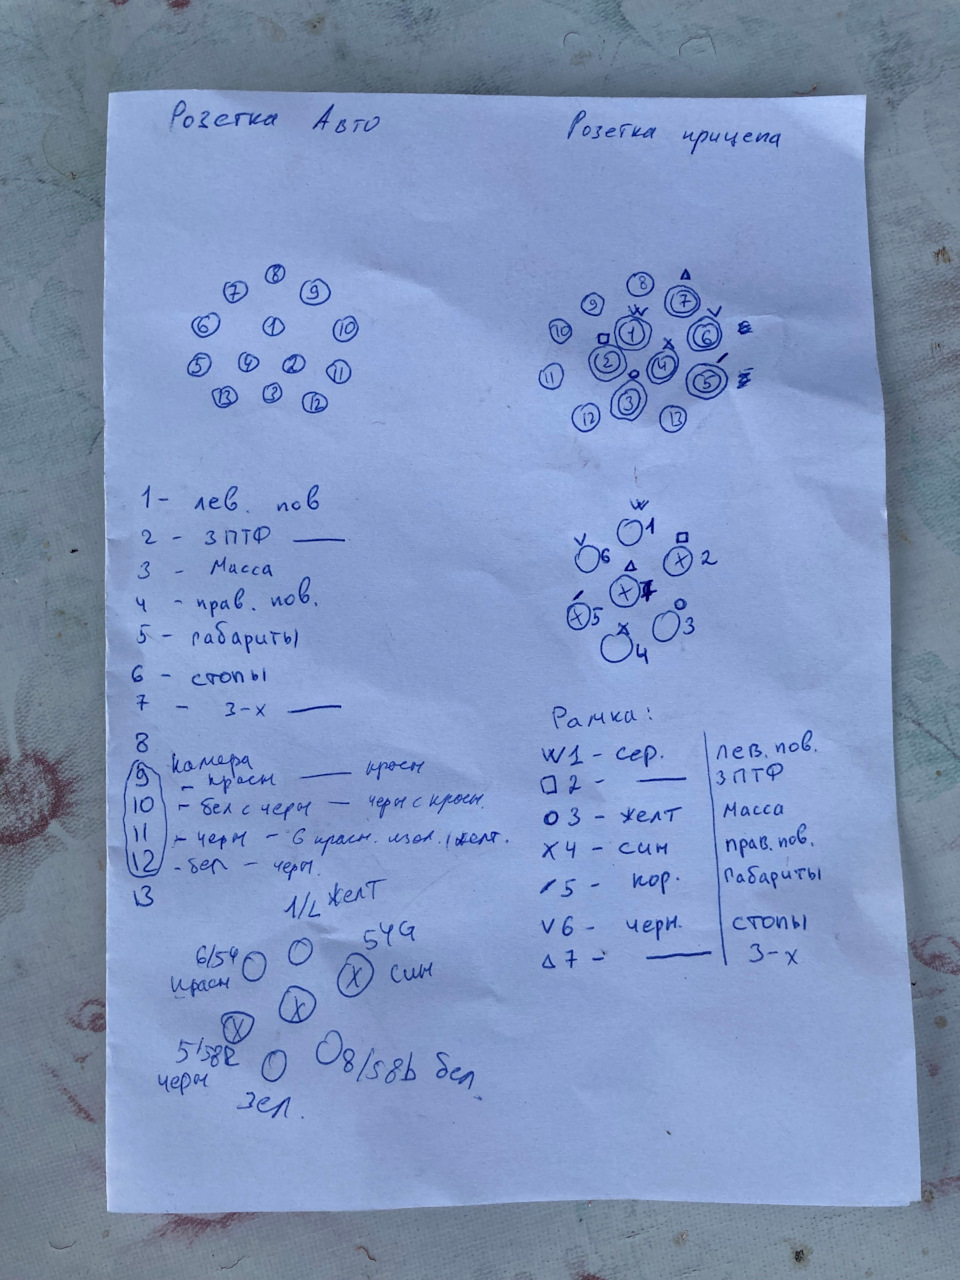 Розетка Авто
Розетка прицепа
8
7 9
6 1 10
5 4 2 11
13 3 12
8 7
9 W V
10 1 6
2 4
11 3 5
12 13
1 - лев. пов
2 - ЗПТФ —
3 - Масса
4 - прав. пов.
5 - габариты
6 - стопы
7 - З-х —
8
камера
9 - красн — красн
10 - бел с черн — черн с красн.
11 - черн - в красн. изол. / желт.
12 - бел - черн.
13
W
1
V 6
2
X 7
X 5
3
X 4
Рамка:
W 1 - сер. лев. пов.
2 - — ЗПТФ
3 - желт Масса
X 4 - син прав. пов.
5 - кор. габариты
V 6 - черн. стопы
7 - — З-х
1/L желт
6/54 красн
54G син
X
X
X
5/58R черн
8/58b бел
зел.